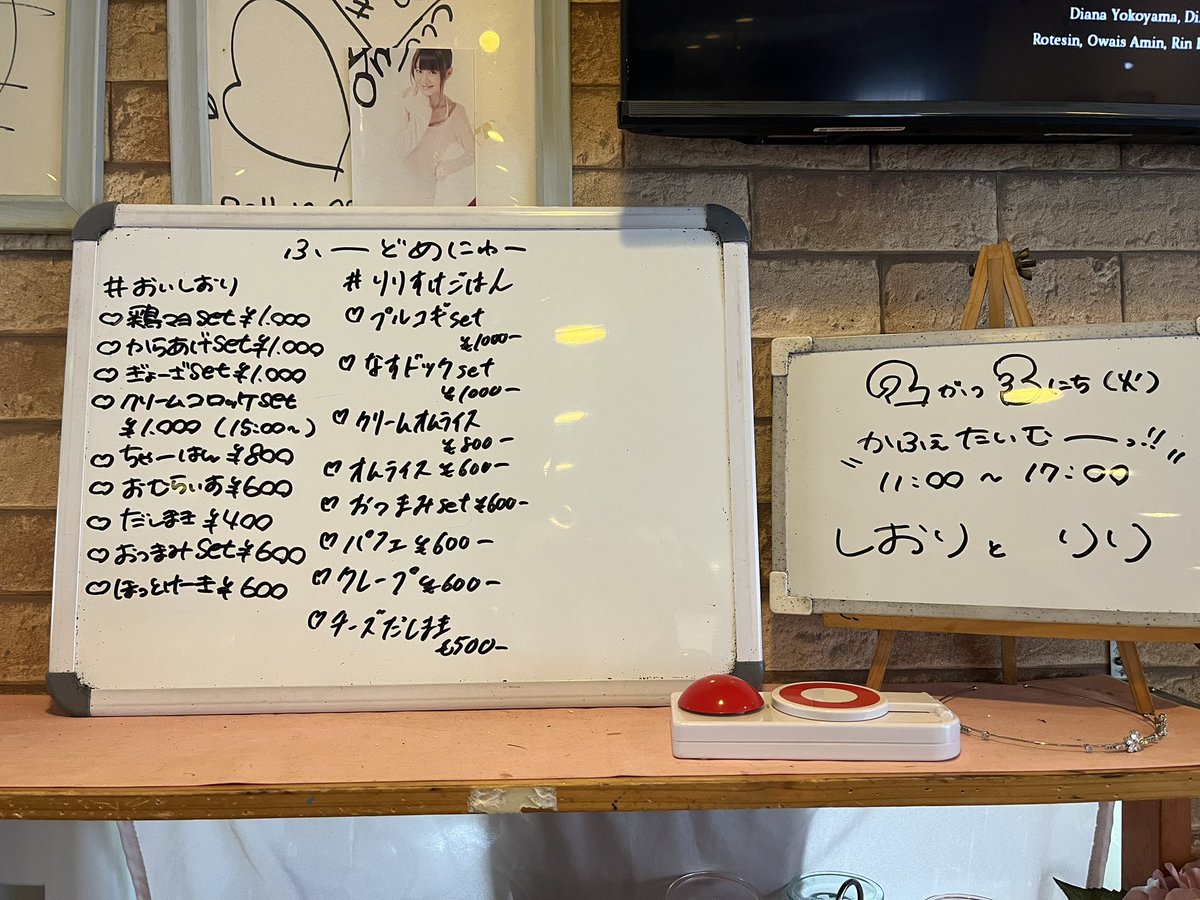 Diana Yokoyama, Di
Rotesin, Owais Amin, Rin
ふーどめにゅー
#おいしおり
♡鶏マヨset¥1.000
♡からあげset¥1.000
♡ぎょーざset¥1.000
♡クリームコロッケset
¥1.000 (15:00~)
♡ちゃーはん¥800
♡おむらいす¥600
♡だしまき¥400
♡おつまみset¥600
♡ほっとけーき¥600
#りりすけごはん
♡プルコギset
¥1000-
♡なすドックset
¥1000-
♡クリームオムライス
¥800-
♡オムライス¥600-
♡おつまみset¥600-
♡パフェ¥600-
♡クレープ¥600-
♡チーズだしまき
¥500-
がつ 3にち(火)
"かふぇたいむーっ!!"
11:00~17:00
しおりと りり